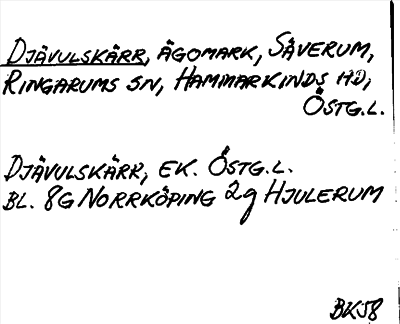 DJÄVULSKÄRR, ÄGOMARK, SÄVERUM,
RINGARUMS SN, HAMMARKINDS HD,
ÖSTG.L.
DJÄVULSKÄRR, EK. ÖSTG.L.
BL. 8G NORRKÖPING 2g HJULERUM
BK58